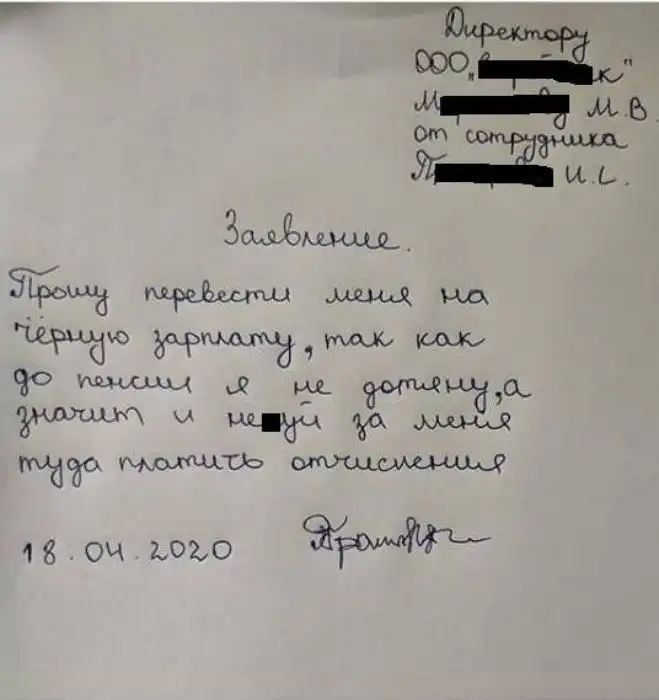 Директору
ООО „ к"
М М.В.
от сотрудника
П И.С.
Заявление.
Прошу перевести меня на
чёрную зарплату, так как
до пенсии я не дотяну, а
значит и не уй за меня
туда платить отчисления
18.04.2020